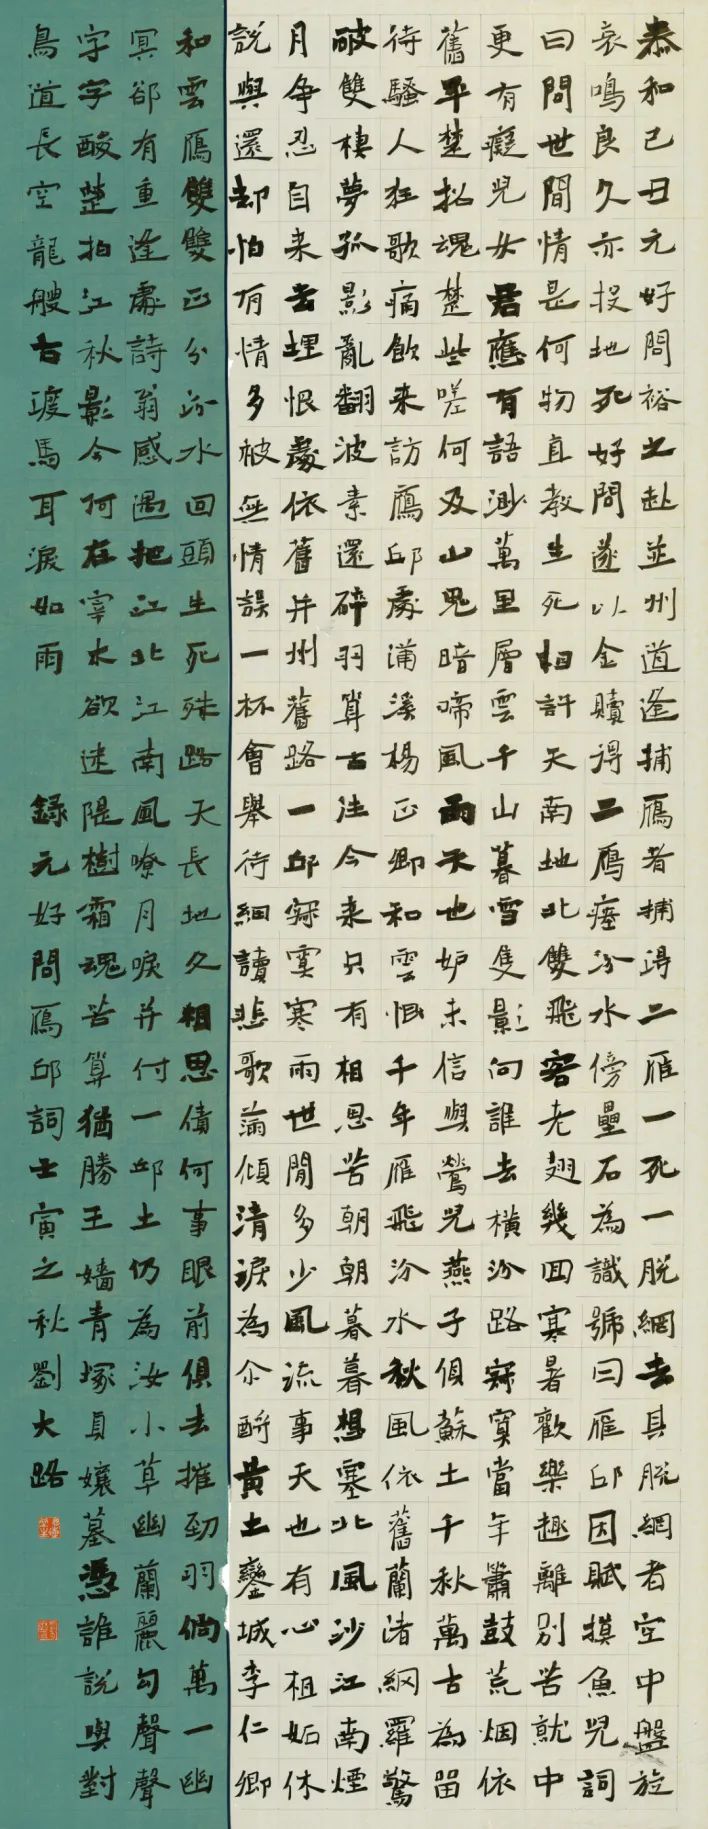 泰和己丑元好問裕之赴並州道逢捕鴈者捕得二雁一死一脫網去其脫網者空中盤旋
哀鳴良久亦投地死好問遂以金贖得二鴈瘞汾水傍壘石為識號曰雁邱因賦摸魚兒詞
曰問世間情是何物直教生死相許天南地北雙飛客老翅幾回寒暑歡樂趣離別苦就中
更有癡兒女君應有語渺萬里層雲千山暮雪隻影向誰去橫汾路寂寞當年簫鼓荒烟依
舊平楚招魂楚些嗟何及山鬼暗啼風雨天也妒未信與鶯兒燕子俱蘇土千秋萬古為留
待騷人狂歌痛飲來訪鴈邱處蒲溪楊正卿和雲恨千年雁飛汾水秋風依舊蘭渚網羅驚
破雙棲夢孤影亂翻波素還碎羽算古往今來只有相思苦朝朝暮暮想塞北風沙江南煙
月爭忍自來去埋恨處依舊并州舊路一邱寂寞寒雨世間多少風流事天也有心相妒休
說與還却怕有情多被無情誤一杯會舉待細讀悲歌滿傾清淚為尒酹黃土欒城李仁卿
和雲鴈雙雙正分汾水回頭生死殊路天長地久相思債何事眼前俱去摧勁羽倘萬一幽
冥卻有重逢處詩翁感遇把江北江南風嘹月唳并付一邱土仍為汝小草幽蘭麗句聲聲
字字酸楚拍江秋影今何在宰木欲迷隄樹霜魂苦算猶勝王嬙青塚貞孃墓憑誰說與對
鳥道長空龍艘古渡馬耳淚如雨 錄元好問鴈邱詞壬寅之秋劉大路